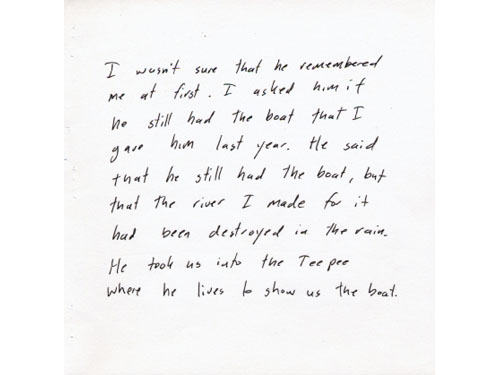 I wasn't sure that he remembered
me at first. I asked him if
he still had the boat that I
gave him last year. He said
that he still had the boat, but
that the river I made for it
had been destroyed in the rain.
He took us into the Teepee
where he lives to show us the boat.